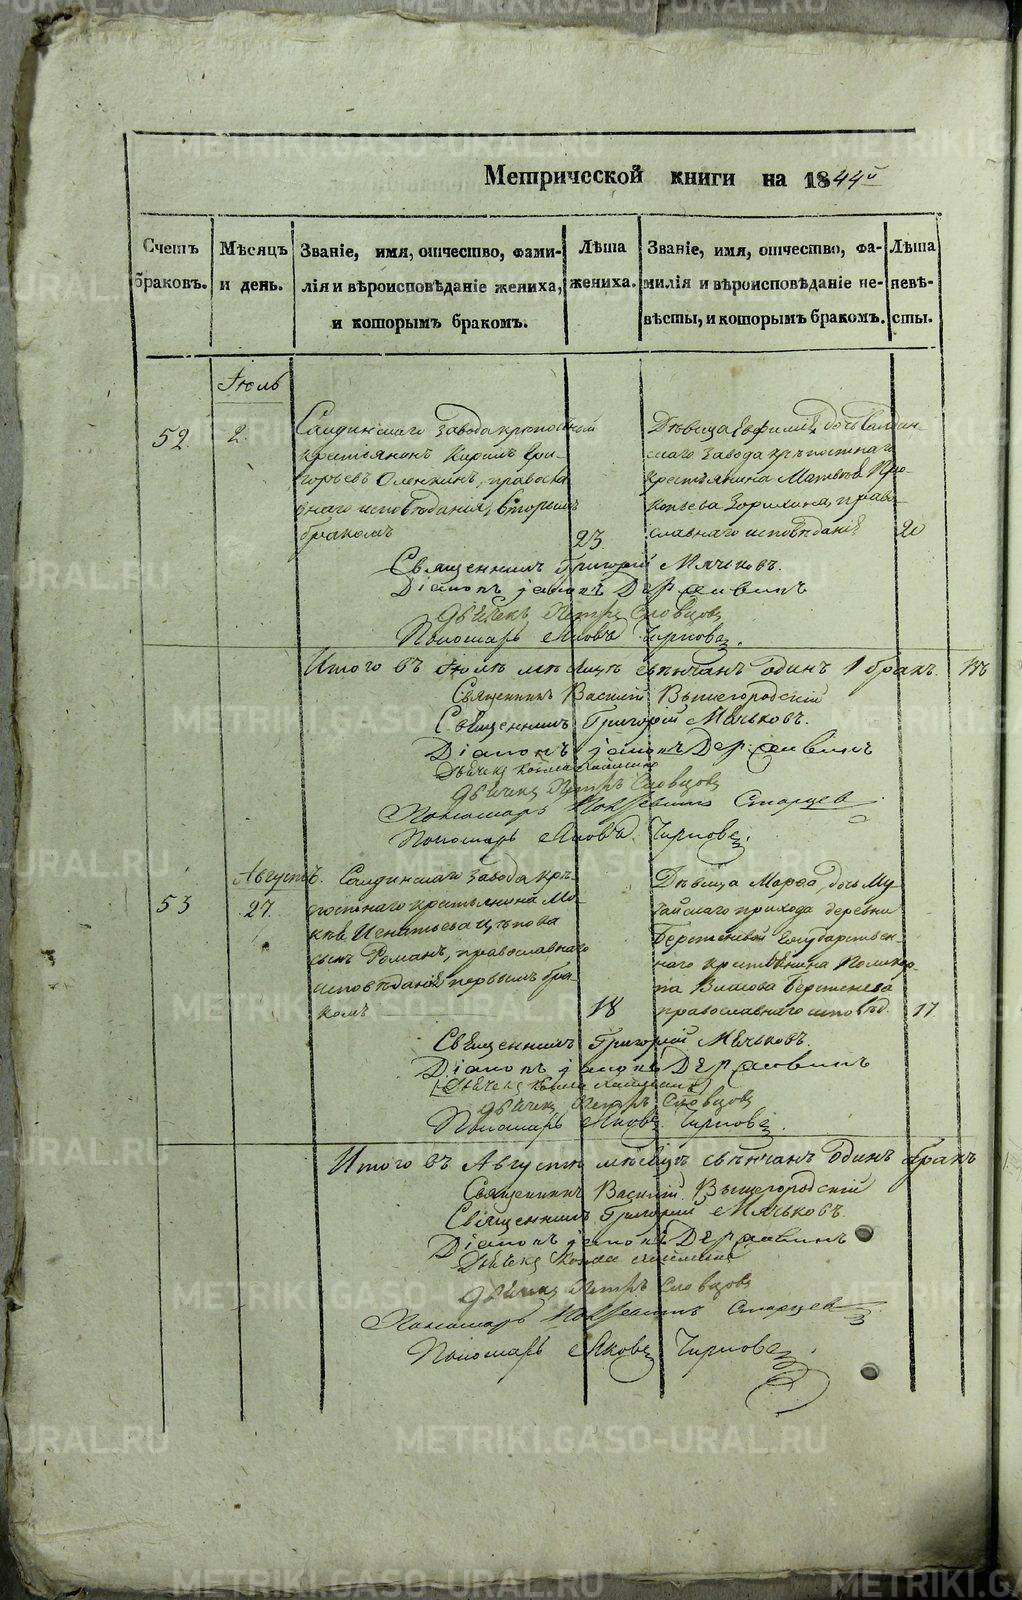 Метрической книги на 1844й
Счетъ браковъ.
Мѣсяцъ и день.
Званіе, имя, отчество, фами-
лія и вѣроисповѣданіе жениха,
и которымъ бракомъ.
Лѣта жениха.
Званіе, имя, отчество, фа-
милія и вѣроисповѣданіе не-
вѣсты, и которымъ бракомъ.
Лѣта невѣ-
сты.
Іюль
52
2.
Салдинскаго завода крѣпостный
крестьянинъ Кирилъ Гри-
горьевъ Оленкинъ, правосла
внаго исповѣданія, вторымъ
бракомъ
23
Дѣвица Евфимія дочь Салдин-
скаго завода крѣпостнаго
крестьянина Матвѣя Про-
копьева Зорихина, право-
славнаго исповѣданія
20
Священникъ Григорій Мячковъ.
Діаконъ Іаковъ Державинъ
Дьячекъ Петръ Словцовъ
Пономарь Яковъ Чирковъ.
Итого въ Іюлѣ мѣсяцѣ свѣнчанъ одинъ 1 бракъ.
Священникъ Василій Вышегородскій
Священникъ Григорій Мячьковъ.
Діаконъ Іаковъ Державинъ
Дьячекъ Козма
Дьячекъ Петръ Словцовъ
Пономарь Старцевъ
Пономарь Яковъ Чирковъ.
53
Августъ.
27.
Салдинскаго завода крѣ-
постнаго крестьянина Мо-
кѣя Игнатьева Цѣпова
сынъ Романъ, православнаго
исповѣданія первымъ бра-
комъ
18
Дѣвица Марѳа, дочь Му-
гайскаго прихода деревни
Берстеневой Государствен-
наго крестьянина Поликар-
па Власова Берстенева
православнаго исповѣд.
17
Священникъ Григорій Мячьковъ.
Діаконъ Іаковъ Державинъ
Дьячекъ Козма
Дьячекъ Петръ Словцовъ
Пономарь Яковъ Чирковъ.
Итого въ Августѣ мѣсяцѣ свѣнчанъ одинъ бракъ
Священникъ Василій Вышегородскій
Священникъ Григорій Мячьковъ
Діаконъ Іаковъ Державинъ
Дьячекъ Козма
Дьячекъ Петръ Словцовъ
Пономарь Старцевъ
Пономарь Яковъ Чирковъ.
METRIKI.GASO-URAL.RU